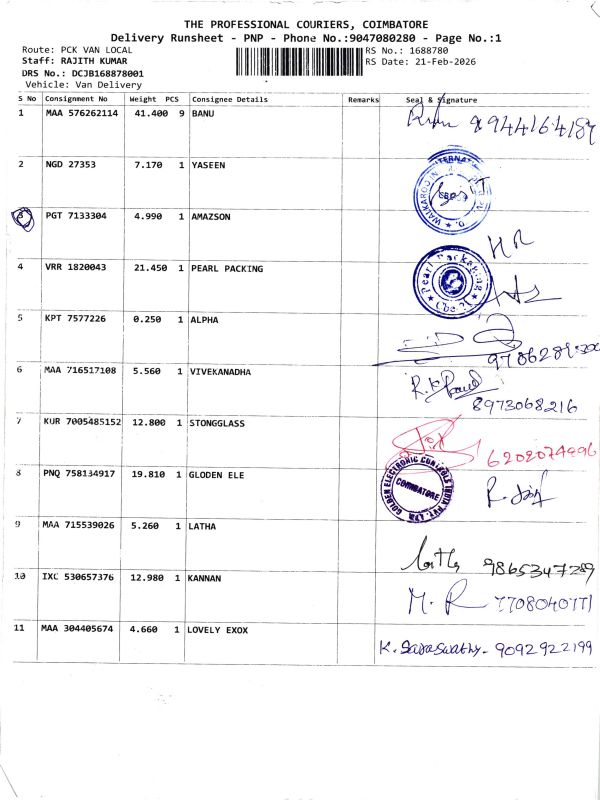 THE PROFESSIONAL COURIERS, COIMBATORE
Delivery Runsheet - PNP - Phone No.:9047080280 - Page No.:1
Route: PCK VAN LOCAL
RS No.: 1688780
Staff: RAJITH KUMAR
RS Date: 21-Feb-2026
DRS No.: DCJB168878001
Vehicle: Van Delivery
S No Consignment No Weight PCS Consignee Details Remarks Seal & Signature
1 MAA 576262114 41.400 9 BANU
2 NGD 27353 7.170 1 YASEEN
3 PGT 7133304 4.990 1 AMAZSON
HR
4 VRR 1820043 21.450 1 PEARL PACKING
Pearl Packaging
Cbe-21
5 KPT 7577226 0.250 1 ALPHA
6 MAA 716517108 5.560 1 VIVEKANADHA
8973068216
7 KUR 7005485152 12.800 1 STONGGLASS
6202074996
8 PNQ 758134917 19.810 1 GLODEN ELE
GOLDEN ELECTRONIC CONTROLS INDIA PVT. LTD.
COIMBATORE
9 MAA 715539026 5.260 1 LATHA
Latha 9865347289
10 IXC 530657376 12.980 1 KANNAN
M. R 7708040771
11 MAA 304405674 4.660 1 LOVELY EXOX
K. Saraswathy - 9092922199